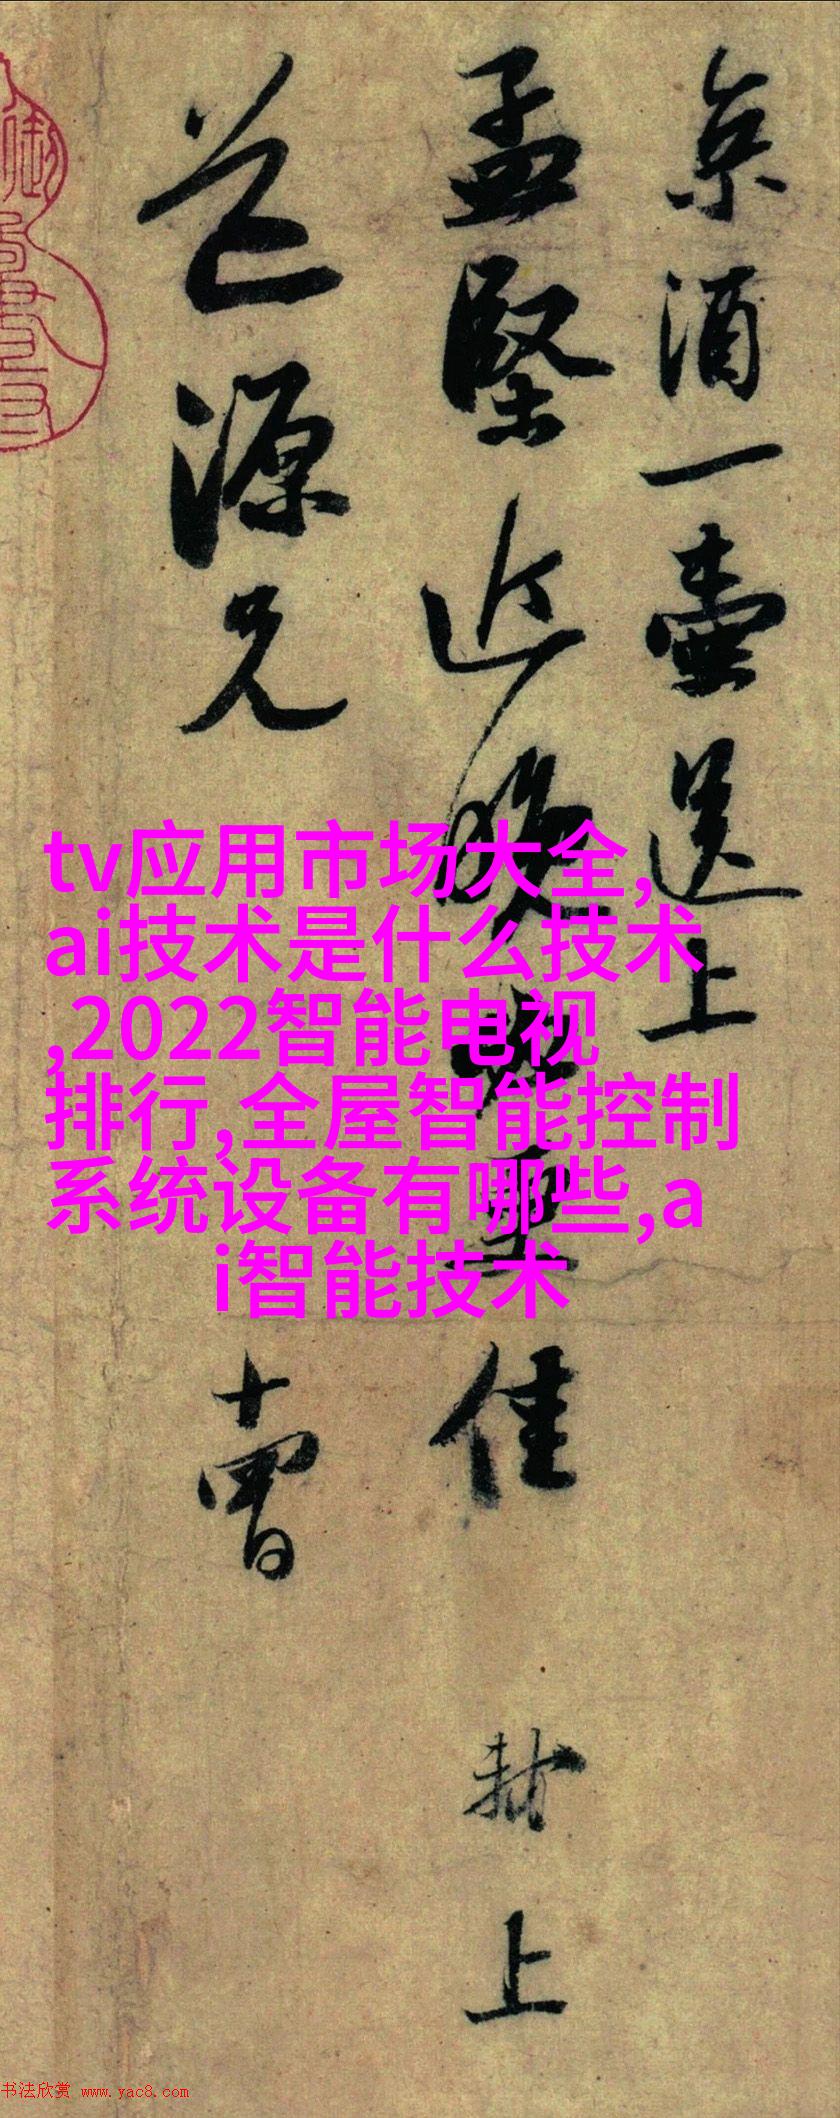 京酒一壺送上
孟堅近晚必更佳 軾上
道源兄 十四日
tv应用市场大全,
ai技术是什么技术
,2022智能电视
排行,全屋智能控制
系统设备有哪些,a
i智能技术
书法欣赏 www.yac8.com